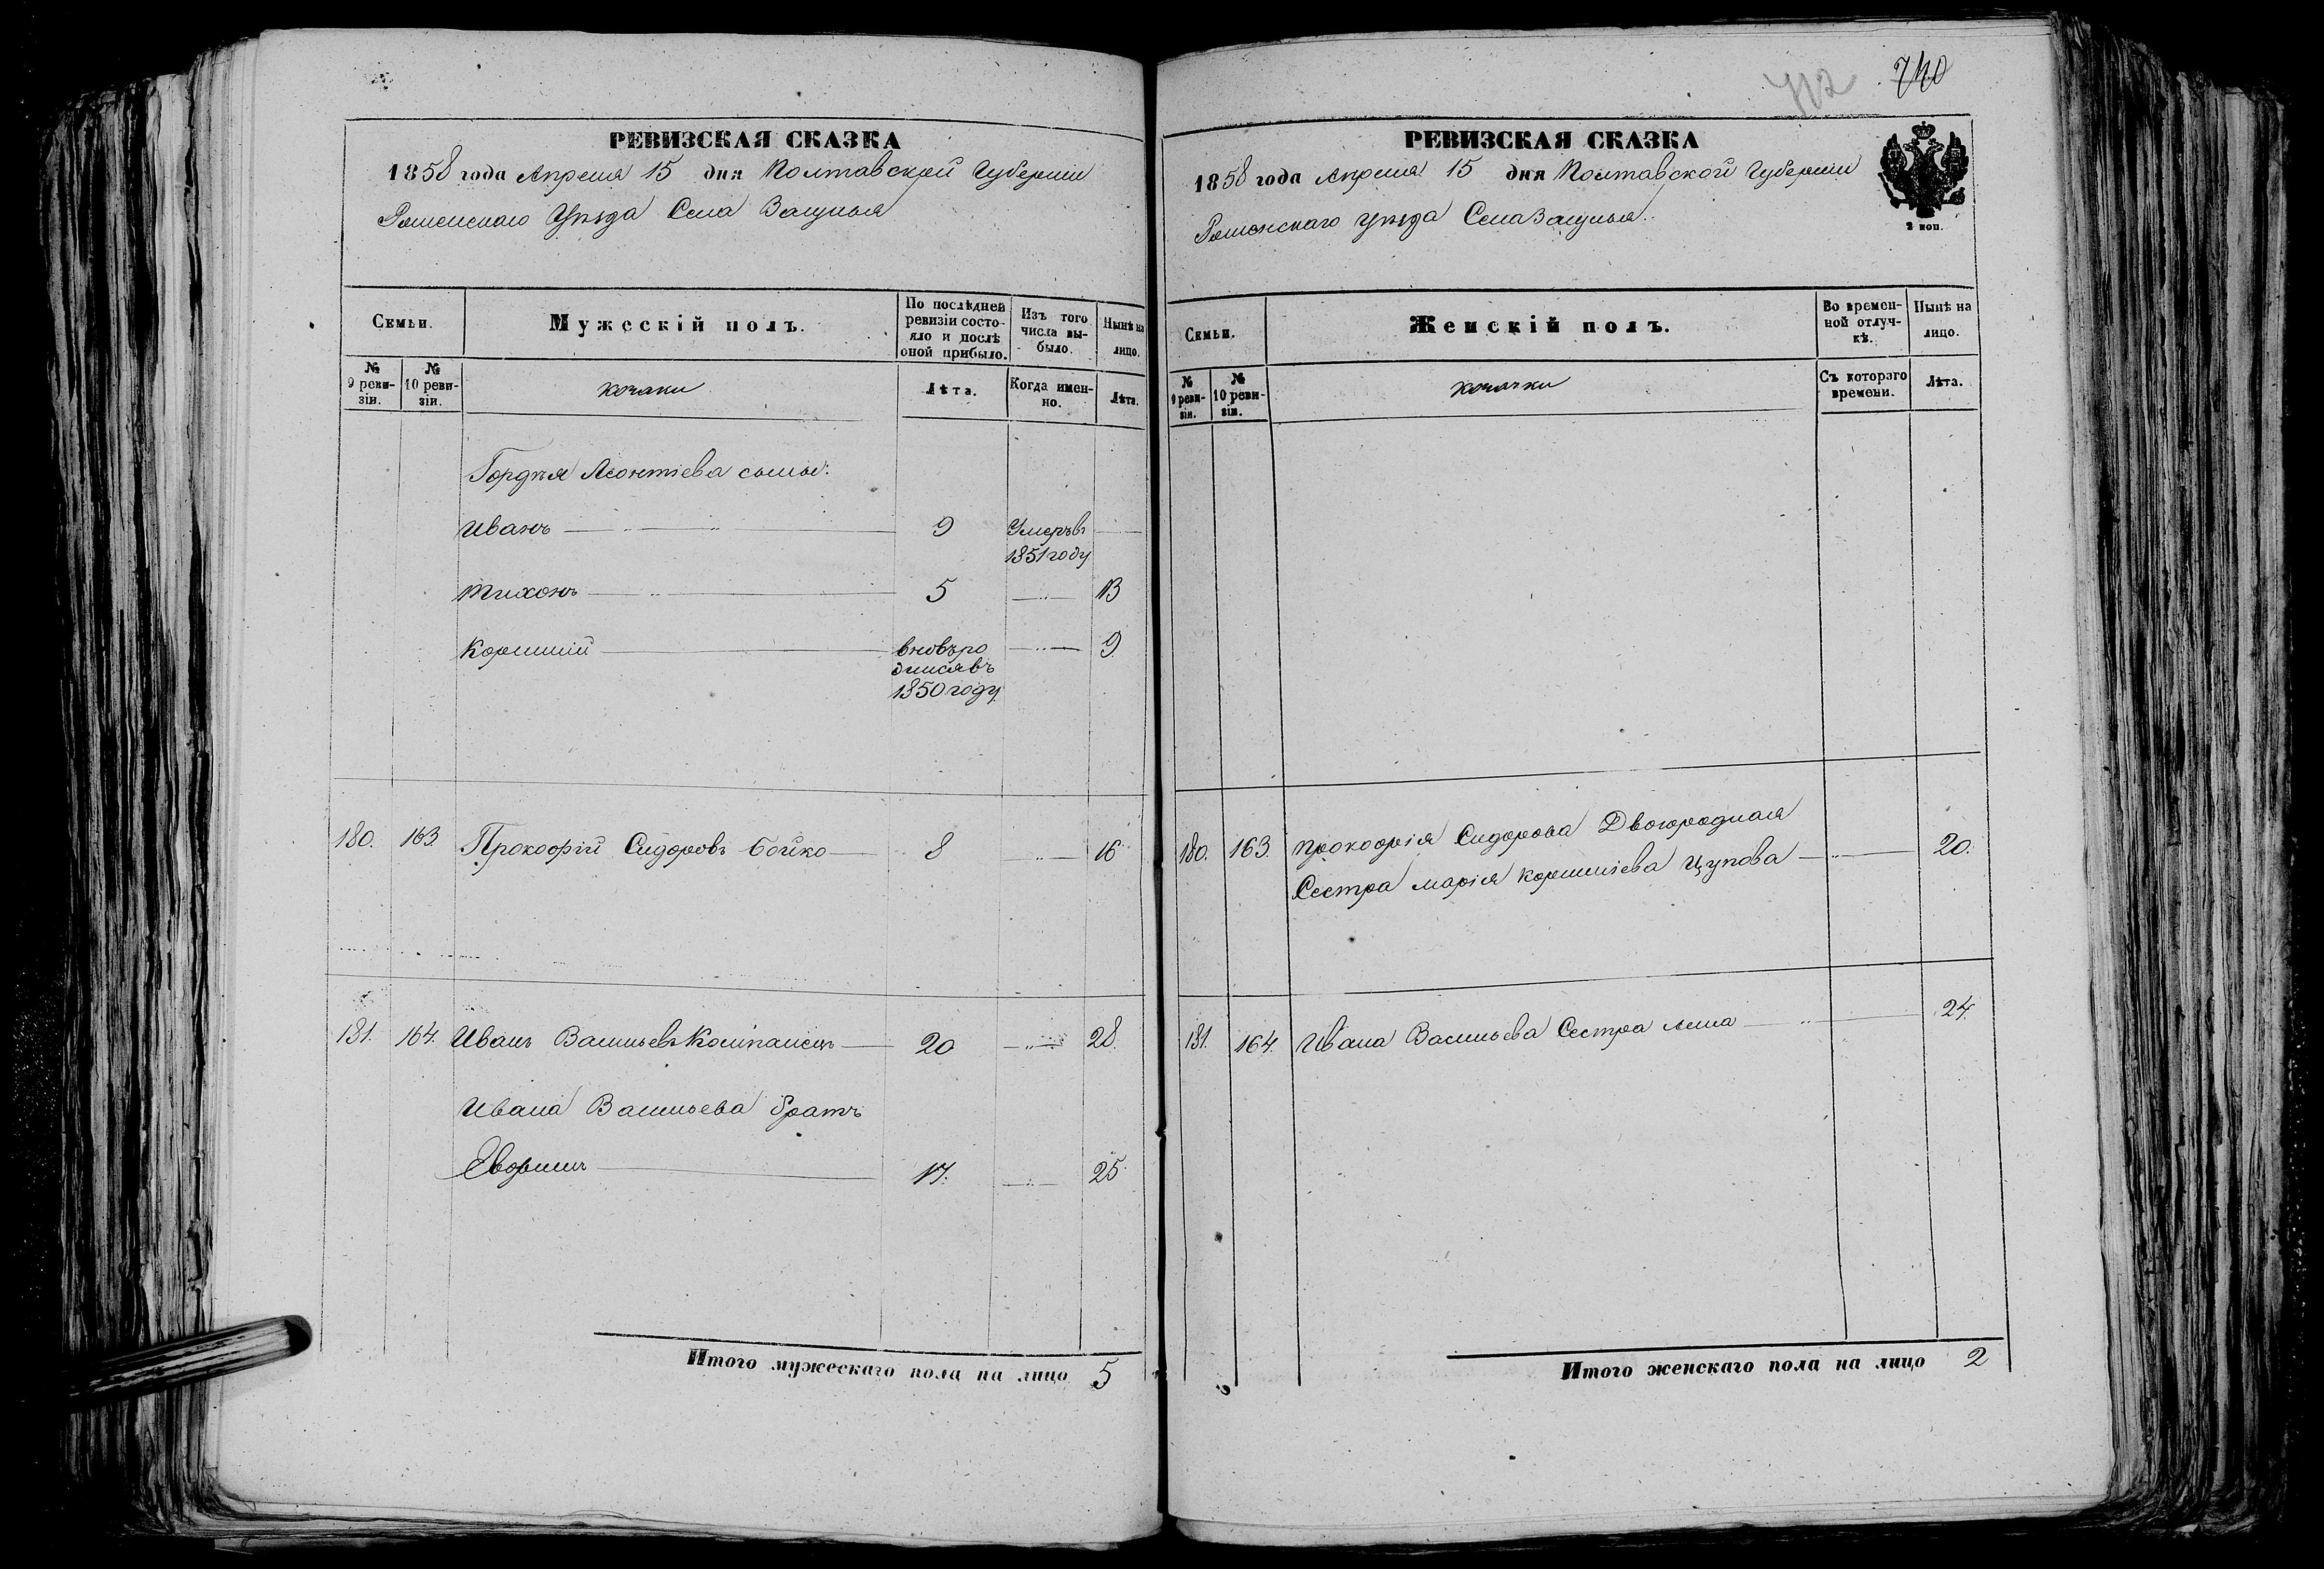 712 740
РЕВИЗСКАЯ СКАЗКА
1858 года Апреля 15 дня Полтавской Губерніи
Роменскаго Уѣзда Села
Семьи.
Мужескій полъ.
По послѣдней ревизіи состояло и послѣ оной прибыло.
Изъ того числа выбыло.
Нынѣ на лицо.
№ 9 ревизіи.
№ 10 ревизіи.
козаки
Лѣта.
Когда именно.
Лѣта.
Гордѣя Леонтіева сыны:
Иванъ 9 Умеръ въ
1851 году
Тихонъ 5 13
Корнилій вновь ро 9
дился въ
1850 году
180. 163. Прокофій Сидоровъ Бойко 8 16
181. 164. Иванъ Васильевъ Компанецъ 20 28.
Ивана Васильева братъ
17. 25.
Итого мужескаго пола на лицо 5
РЕВИЗСКАЯ СКАЗКА
1858 года Апреля 15 дня Полтавской Губерніи
Роменскаго Уѣзда Села
2 коп.
Семьи.
Женскій полъ.
Во временной отлучкѣ.
Нынѣ на лицо.
№ 9 ревизіи.
№ 10 ревизіи.
козачки
Съ котораго времени.
Лѣта.
180. 163. Прокофія Сидорова Двоюродная
Сестра Марія Корниліева Цупова 20.
181. 164. Ивана Васильева Сестра 24.
Итого женскаго пола на лицо 2